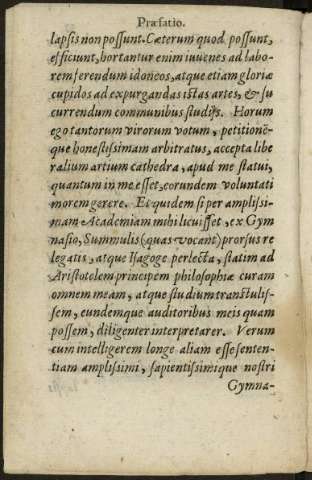 Præfatio.
lapsis non possunt. Cæterum quod possunt,
efficiunt, hortantur enim iuvenes ad labo-
rem ferendum idoneos, atque etiam gloriæ
cupidos ad expurgandas istas artes, & su
currendum communibus studijs. Horum
ego tantorum virorum votum, petitionē-
que honestissimam arbitratus, accepta libe
ralium artium cathedra, apud me statui,
quantum in me esset, eorundem voluntati
morem gerere. Et quidem si per amplissi-
mam Academiam mihi licuisset, ex Gym
nasio, Summulis (quas vocant) prorsus re
legatis, atque Isagoge perlecta, statim ad
Aristotelem principem philosophiæ curam
omnem meam, atque studium transtulis-
sem, eundemque auditoribus meis quam
possem, diligenter interpretarer. Verum
cum intelligerem longe aliam esse senten-
tiam amplissimi, sapientissimique nostri
Gymna-